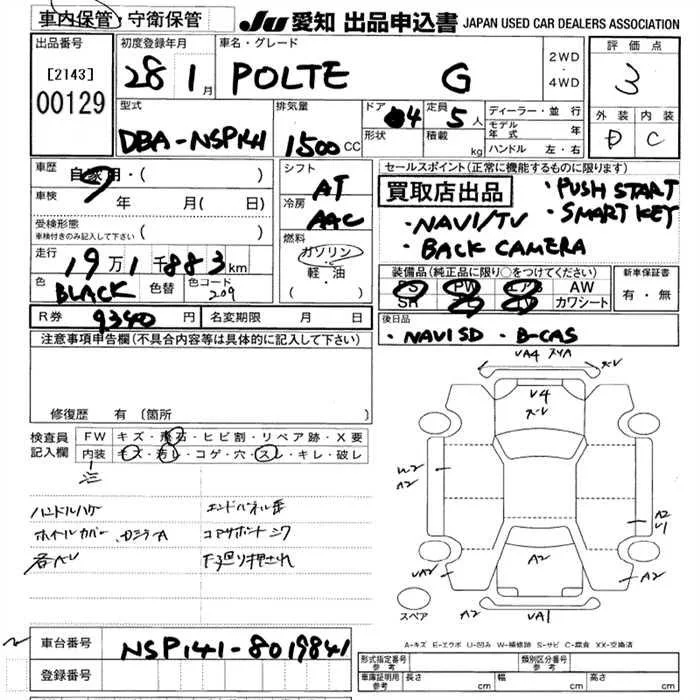 車内保管・守衛保管
JU 愛知 出品申込書 JAPAN USED CAR DEALERS ASSOCIATION
出品番号 初度登録年月 車名・グレード 2WD・4WD 評価点
[2143] 00129 28 1月 POLTE G 3
型式 排気量 ドア 4 定員 5人 ディーラー・並行 外装 内装
DBA-NSP141 1500CC 形状 積載 kg モデル年式 年 D C
ハンドル 左・右
車歴 自家用・( ) シフト AT セールスポイント(正常に機能するものに限ります)
車検 年 月( 日) 冷房 AAC 買取店出品 ・PUSH START
・SMART KEY
・NAVI/TV
・BACK CAMERA
受検形態 車検付きのみ記入して下さい ( ) 燃料 ガソリン・軽油 ( )
走行 19万1千883km
装備品(純正品に限り○をつけてください) 新車保証書
色 BLACK 色替 色コード 209
PS PW エアB AW 有・無
SR ナビ TV カワシート
R券 9340円 名変期限 月 日
後日品
・NAVI SD ・B-CAS
注意事項申告欄(不具合内容等は具体的に記入して下さい)
修復歴 有 (箇所 )
検査員記入欄 FW キズ・飛石・ヒビ割・リペア跡・X要
内装 キズ・汚レ・コゲ・穴・スレ・キレ・破レ
ハンドルハゲ エンドパネル歪
ホイールカバー・カジラA コアサポートシワ
各ヘV 下廻り押され
VA4 スリA
ズレ
V4
ズレ
A2
A2
V1
A2
VA2
A2
A2
VA1
スペア
A-キズ E-エクボ U-凹み W-補修跡 S-サビ C-腐食 XX-交換済
車台番号 NSP141-8019841
登録番号
形式指定番号 参考 類別区分番号 参考
車庫証明用 参考 長さ cm 幅 cm 高さ cm